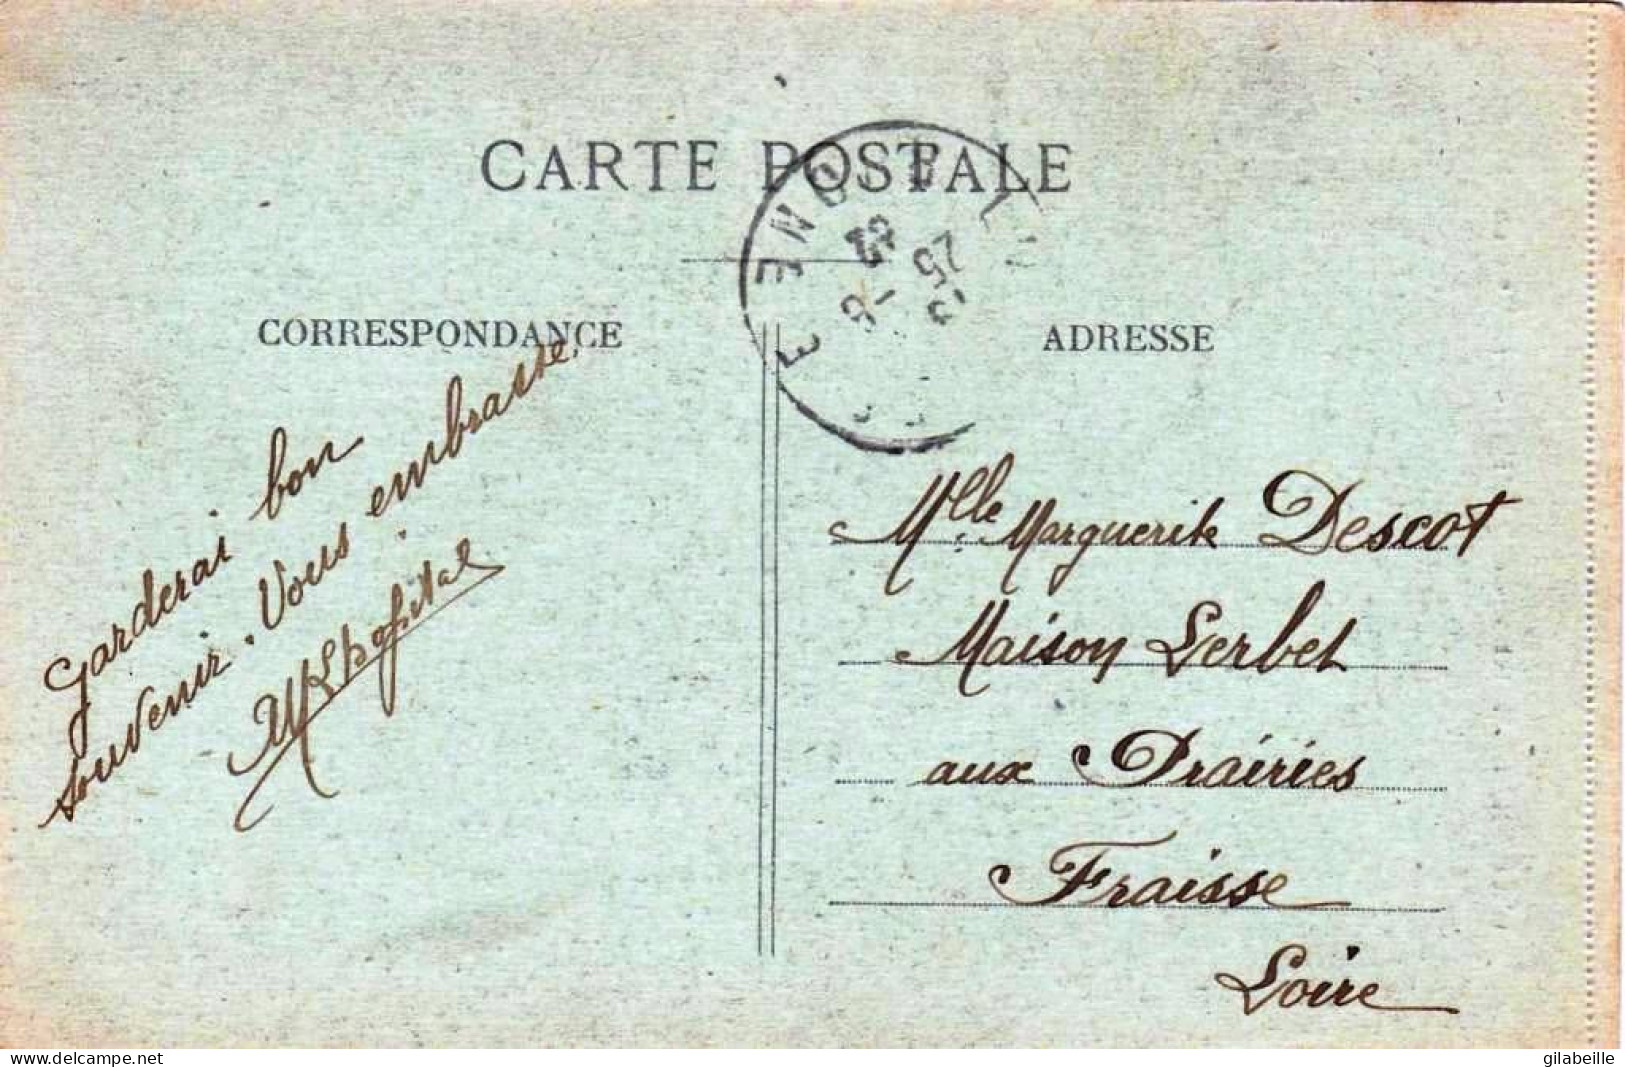 CARTE POSTALE
CORRESPONDANCE
ADRESSE
garderai bon
souvenir. Vous embrasse.
Mlle Marguerite Descot
Maison Lerbet
aux Prairies
Fraisse
Loire
25
delcampe.net
gilabeille